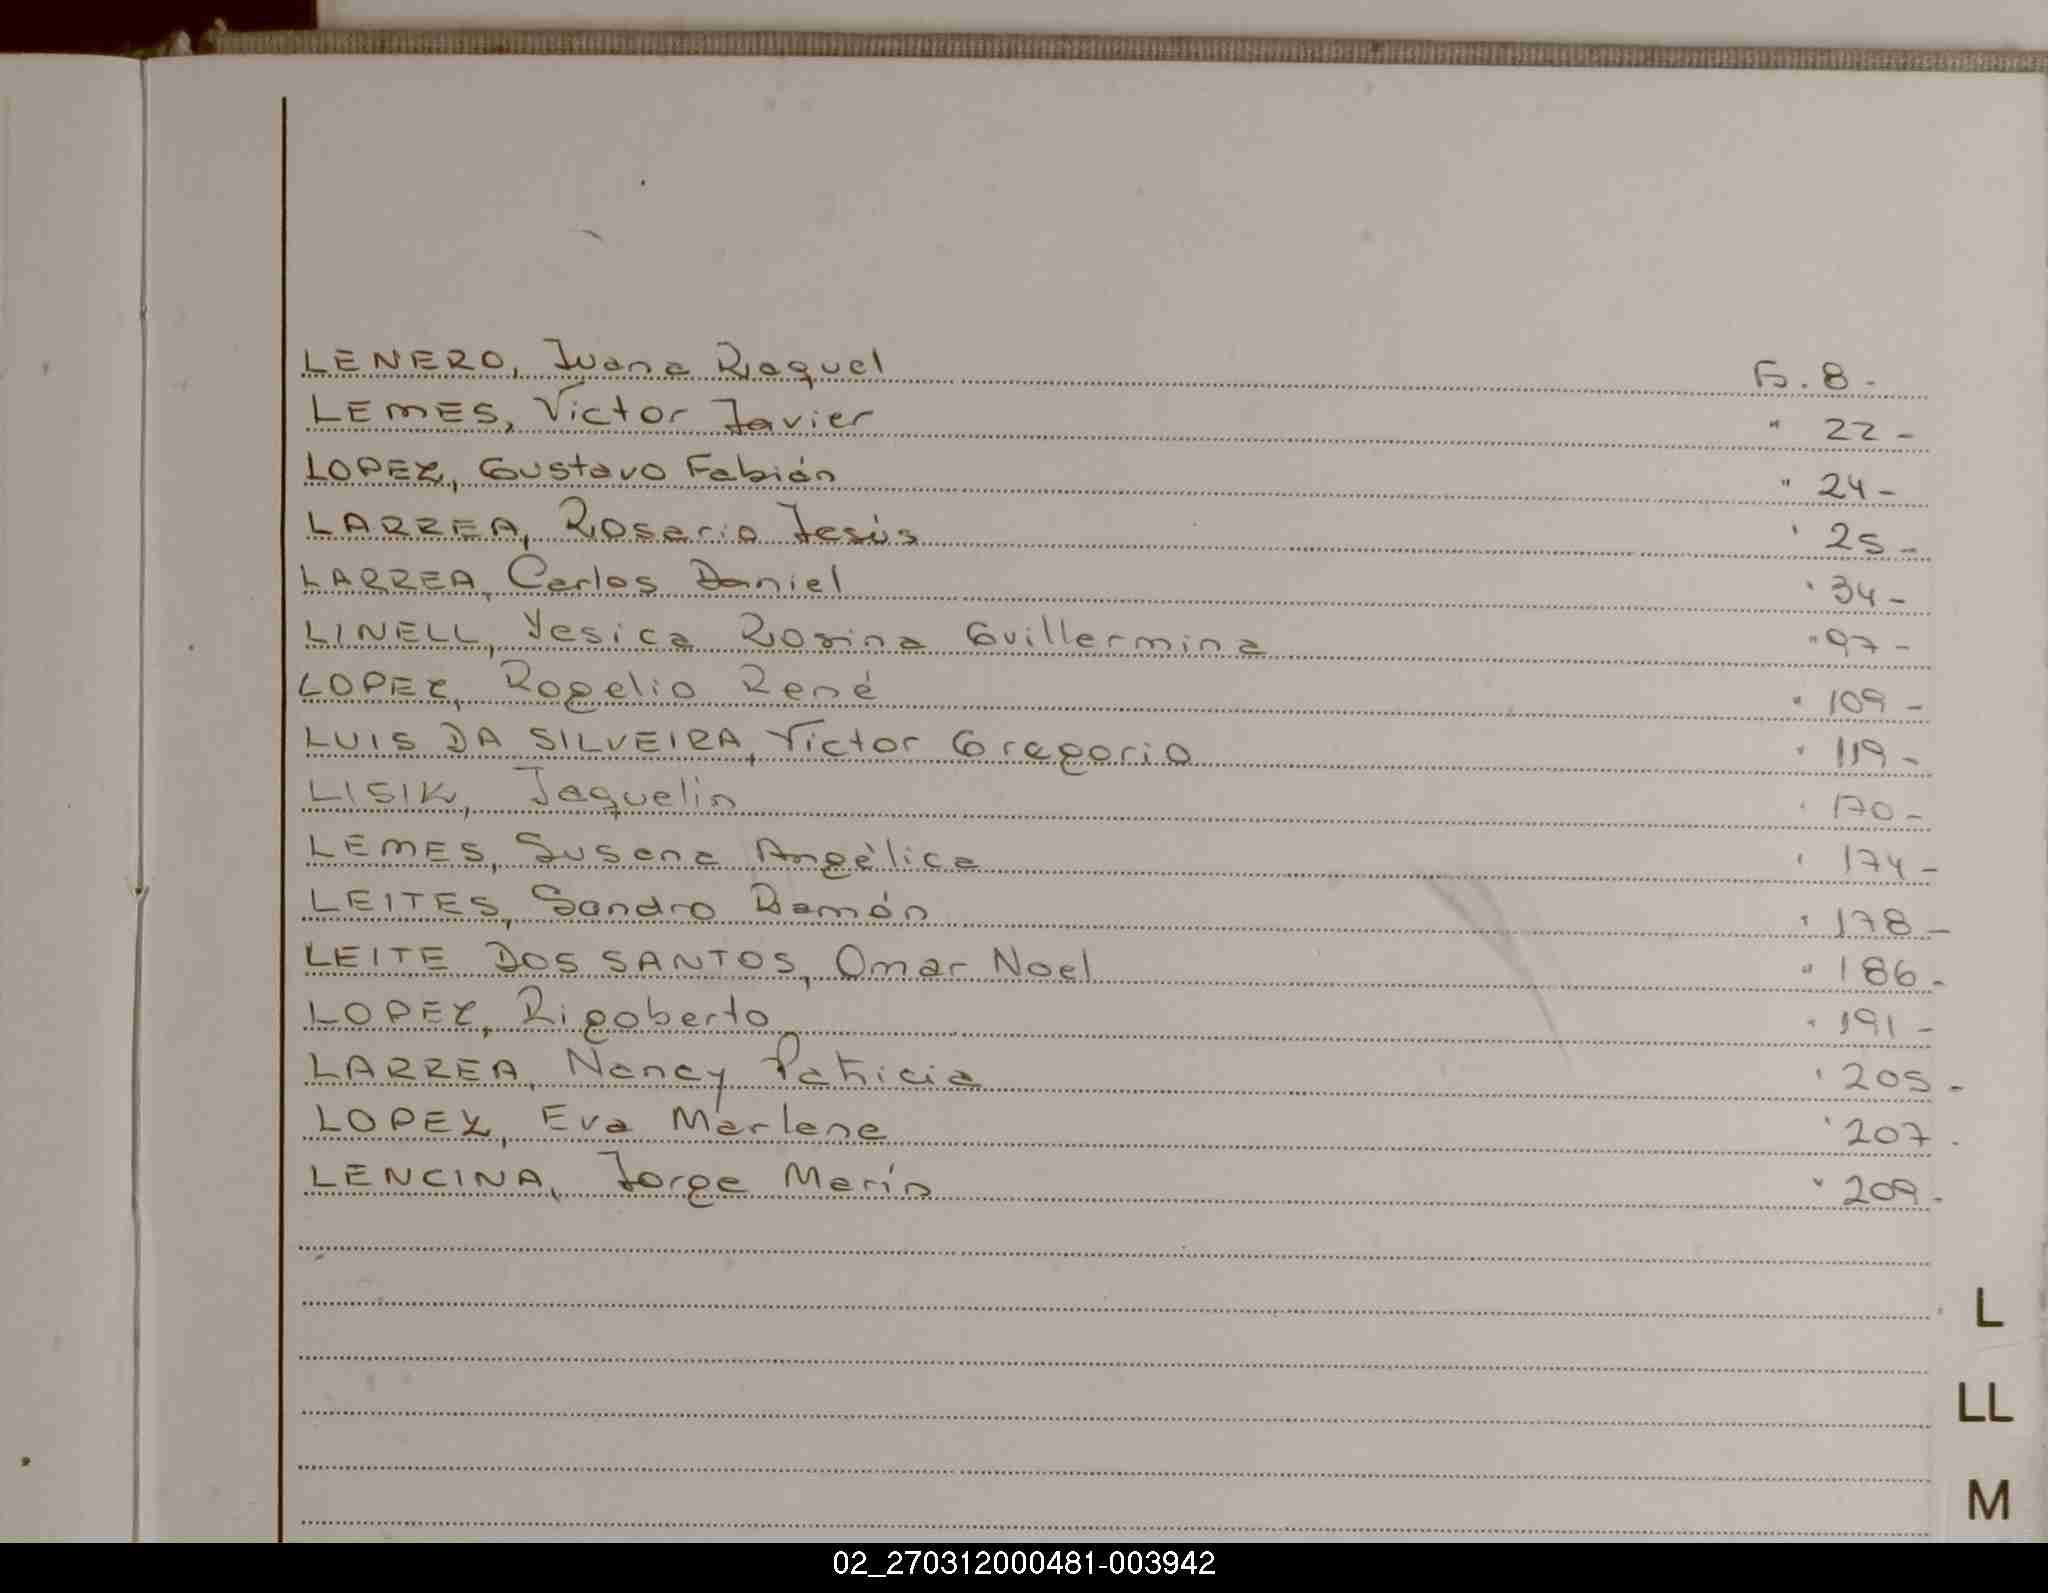 LENERO, Juana Raquel Fs. 8-
LEMES, Victor Javier " 22-
LOPEZ, Gustavo Fabián " 24-
LARREA, Rosario Jesús " 25-
LARREA, Carlos Daniel " 34-
LINELL, Yesica Rosina Guillermina " 97-
LOPEZ, Rogelio René " 109-
LUIS DA SILVEIRA, Victor Gregorio " 119-
LISIK, Jaquelin " 170-
LEMES, Susana Angélica " 174-
LEITES, Sandro Ramón " 178-
LEITE DOS SANTOS, Omar Noel " 186-
LOPEZ, Rigoberto " 191-
LARREA, Nancy Patricia " 205-
LOPEZ, Eva Marlene " 207-
LENCINA, Jorge Marín " 209-
L
LL
M
02_270312000481-003942